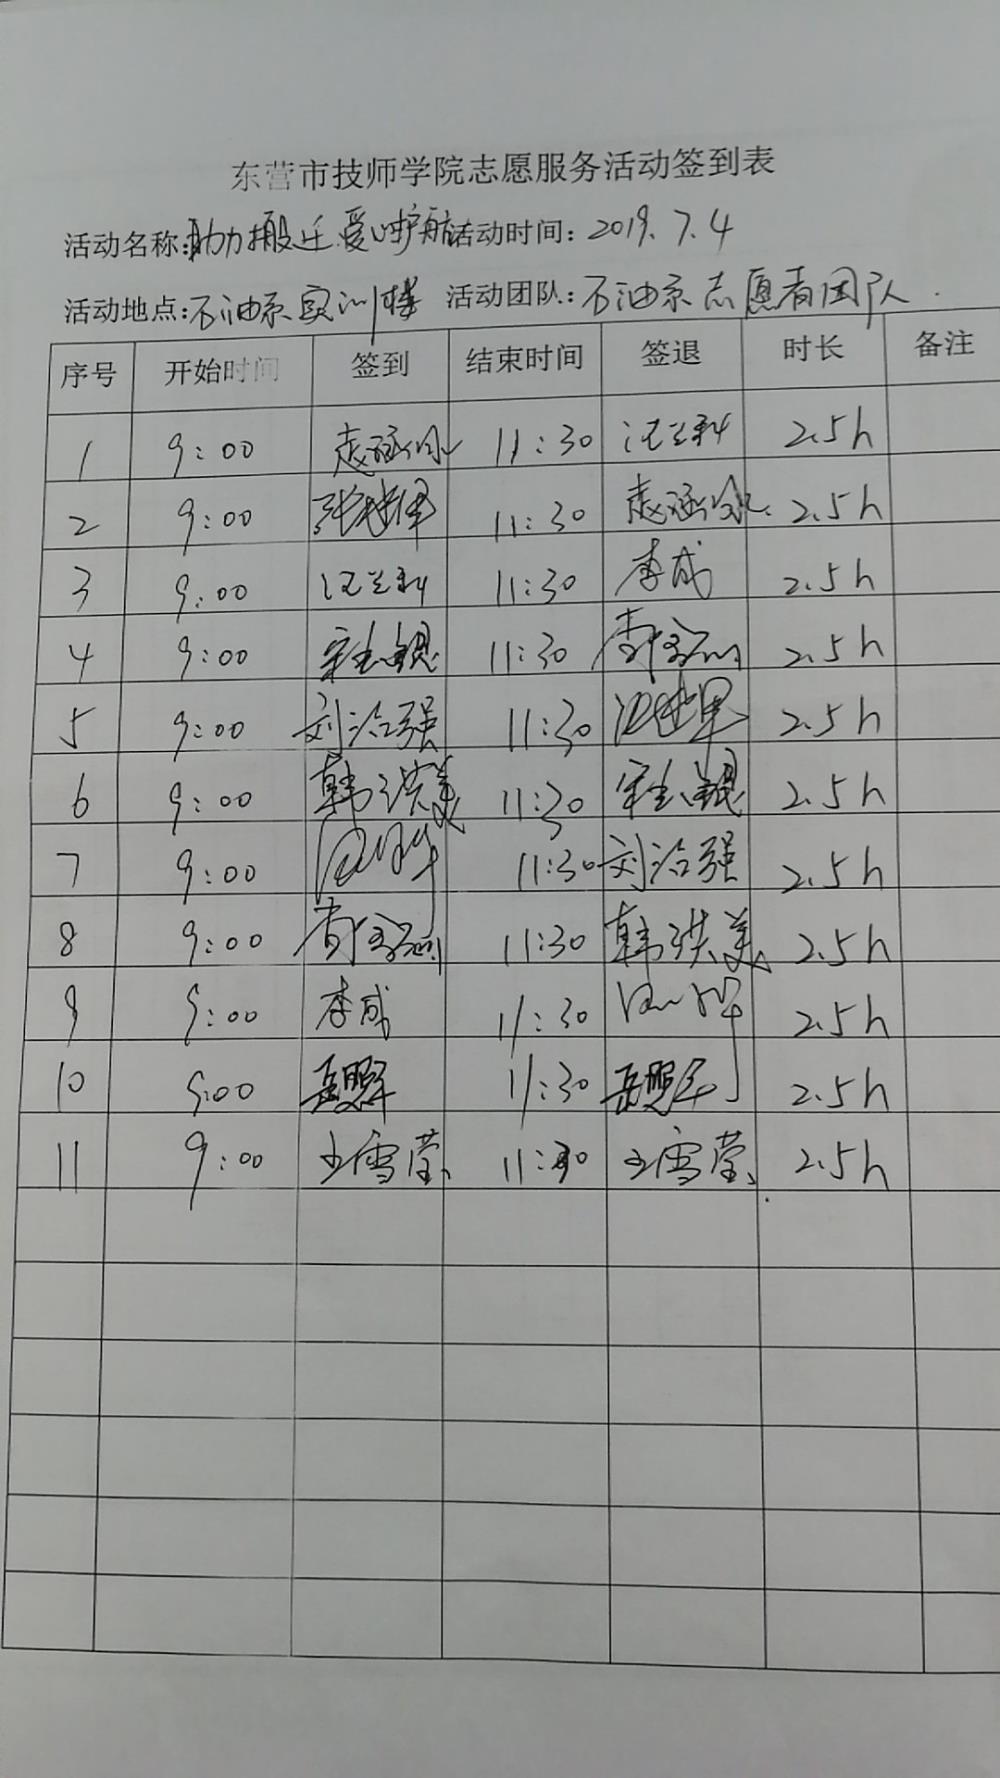 东营市技师学院志愿服务活动签到表
活动名称:助力搬迁爱心护航活动时间:2019.7.4
活动地点:石油系实训楼 活动团队:石油系志愿者团队.
序号 开始时间 签到 结束时间 签退 时长 备注
1 9:00 11:30 2.5h
2 9:00 11:30 2.5h
3 9:00 11:30 李成 2.5h
4 9:00 11:30 2.5h
5 9:00 刘治强 11:30 2.5h
6 9:00 韩洪美 11:30 2.5h
7 9:00 11:30 刘治强 2.5h
8 9:00 11:30 韩洪美 2.5h
9 9:00 李成 11:30 2.5h
10 9:00 11:30 2.5h
11 9:00 王雪莹 11:30 王雪莹 2.5h